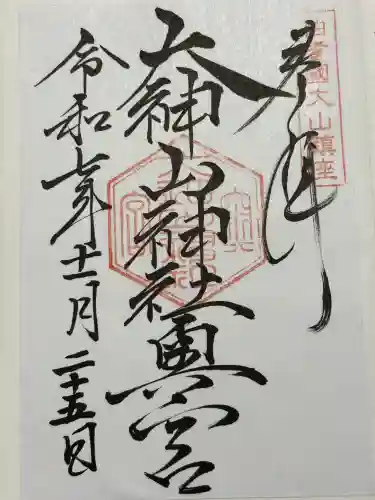 伯耆國大山鎮座
奉拝
大神山神社奥宮
令和七年十一月二十五日